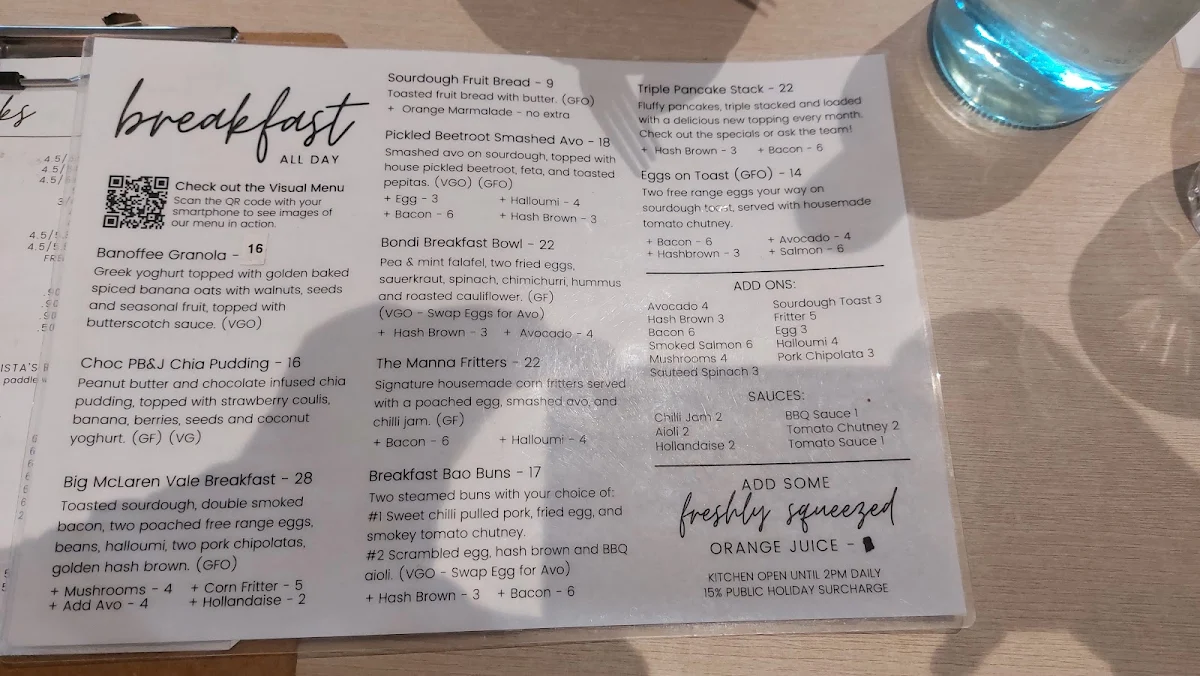 breakfast
ALL DAY
Check out the Visual Menu
Scan the QR code with your
smartphone to see images of
our menu in action.
Banoffee Granola - 16
Greek yoghurt topped with golden baked
spiced banana oats with walnuts, seeds
and seasonal fruit, topped with
butterscotch sauce. (VGO)
Choc PB&J Chia Pudding - 16
Peanut butter and chocolate infused chia
pudding, topped with strawberry coulis,
banana, berries, seeds and coconut
yoghurt. (GF) (VG)
Big McLaren Vale Breakfast - 28
Toasted sourdough, double smoked
bacon, two poached free range eggs,
beans, halloumi, two pork chipolatas,
golden hash brown. (GFO)
+ Mushrooms - 4 + Corn Fritter - 5
+ Add Avo - 4 + Hollandaise - 2
Sourdough Fruit Bread - 9
Toasted fruit bread with butter. (GFO)
+ Orange Marmalade - no extra
Pickled Beetroot Smashed Avo - 18
Smashed avo on sourdough, topped with
house pickled beetroot, feta, and toasted
pepitas. (VGO) (GFO)
+ Egg - 3 + Halloumi - 4
+ Bacon - 6 + Hash Brown - 3
Bondi Breakfast Bowl - 22
Pea & mint falafel, two fried eggs,
sauerkraut, spinach, chimichurri, hummus
and roasted cauliflower. (GF)
(VGO - Swap Eggs for Avo)
+ Hash Brown - 3 + Avocado - 4
The Manna Fritters - 22
Signature housemade corn fritters served
with a poached egg, smashed avo, and
chilli jam. (GF)
+ Bacon - 6 + Halloumi - 4
Breakfast Bao Buns - 17
Two steamed buns with your choice of:
#1 Sweet chilli pulled pork, fried egg, and
smokey tomato chutney.
#2 Scrambled egg, hash brown and BBQ
aioli. (VGO - Swap Egg for Avo)
+ Hash Brown - 3 + Bacon - 6
Triple Pancake Stack - 22
Fluffy pancakes, triple stacked and loaded
with a delicious new topping every month.
Check out the specials or ask the team!
+ Hash Brown - 3 + Bacon - 6
Eggs on Toast (GFO) - 14
Two free range eggs your way on
sourdough toast, served with housemade
tomato chutney.
+ Bacon - 6 + Avocado - 4
+ Hashbrown - 3 + Salmon - 6
ADD ONS:
Avocado 4 Sourdough Toast 3
Hash Brown 3 Fritter 5
Bacon 6 Egg 3
Smoked Salmon 6 Halloumi 4
Mushrooms 4 Pork Chipolata 3
Sauteed Spinach 3
SAUCES:
Chilli Jam 2 BBQ Sauce 1
Aioli 2 Tomato Chutney 2
Hollandaise 2 Tomato Sauce 1
ADD SOME
freshly squeezed
ORANGE JUICE -
KITCHEN OPEN UNTIL 2PM DAILY
15% PUBLIC HOLIDAY SURCHARGE